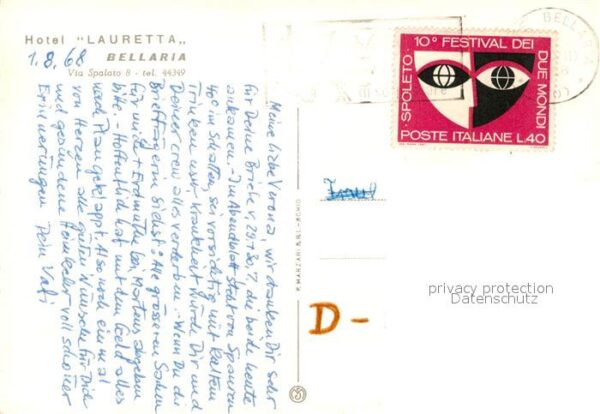 Hotel "LAURETTA"
BELLARIA
Via Spoleto 8 - tel. 44349
1.8.68
Meine liebe Verona, wir danken Dir sehr
für Deine Briefe v. 29 + 30.7. die beide heute
ankamen. - Im Abendblatt steht von Spanien
40° im Schatten, sei vorsichtig mit kaltem
Trinken usw. Krankheit würde Dir und
Deiner crew alles verderben. - Wenn Du die
Briefträgerin siehst: Alle grösseren Sachen
für unter + Erdmuthe bei Martens abgeben
bitte. - Hoffentlich hat mit dem Geld alles
nach Plan geklappt. Also noch einmal
von Herzen alle guten Wünsche für Dich
und gesunde Heimkehr voll schöner
Erinnerungen Dein Vati
P. MARZARI S.R.L. - SCHIO
SPOLETO · 10° FESTIVAL DEI DUE MONDI
POSTE ITALIANE L.40
BELLARIA
D -
privacy protection
Datenschutz